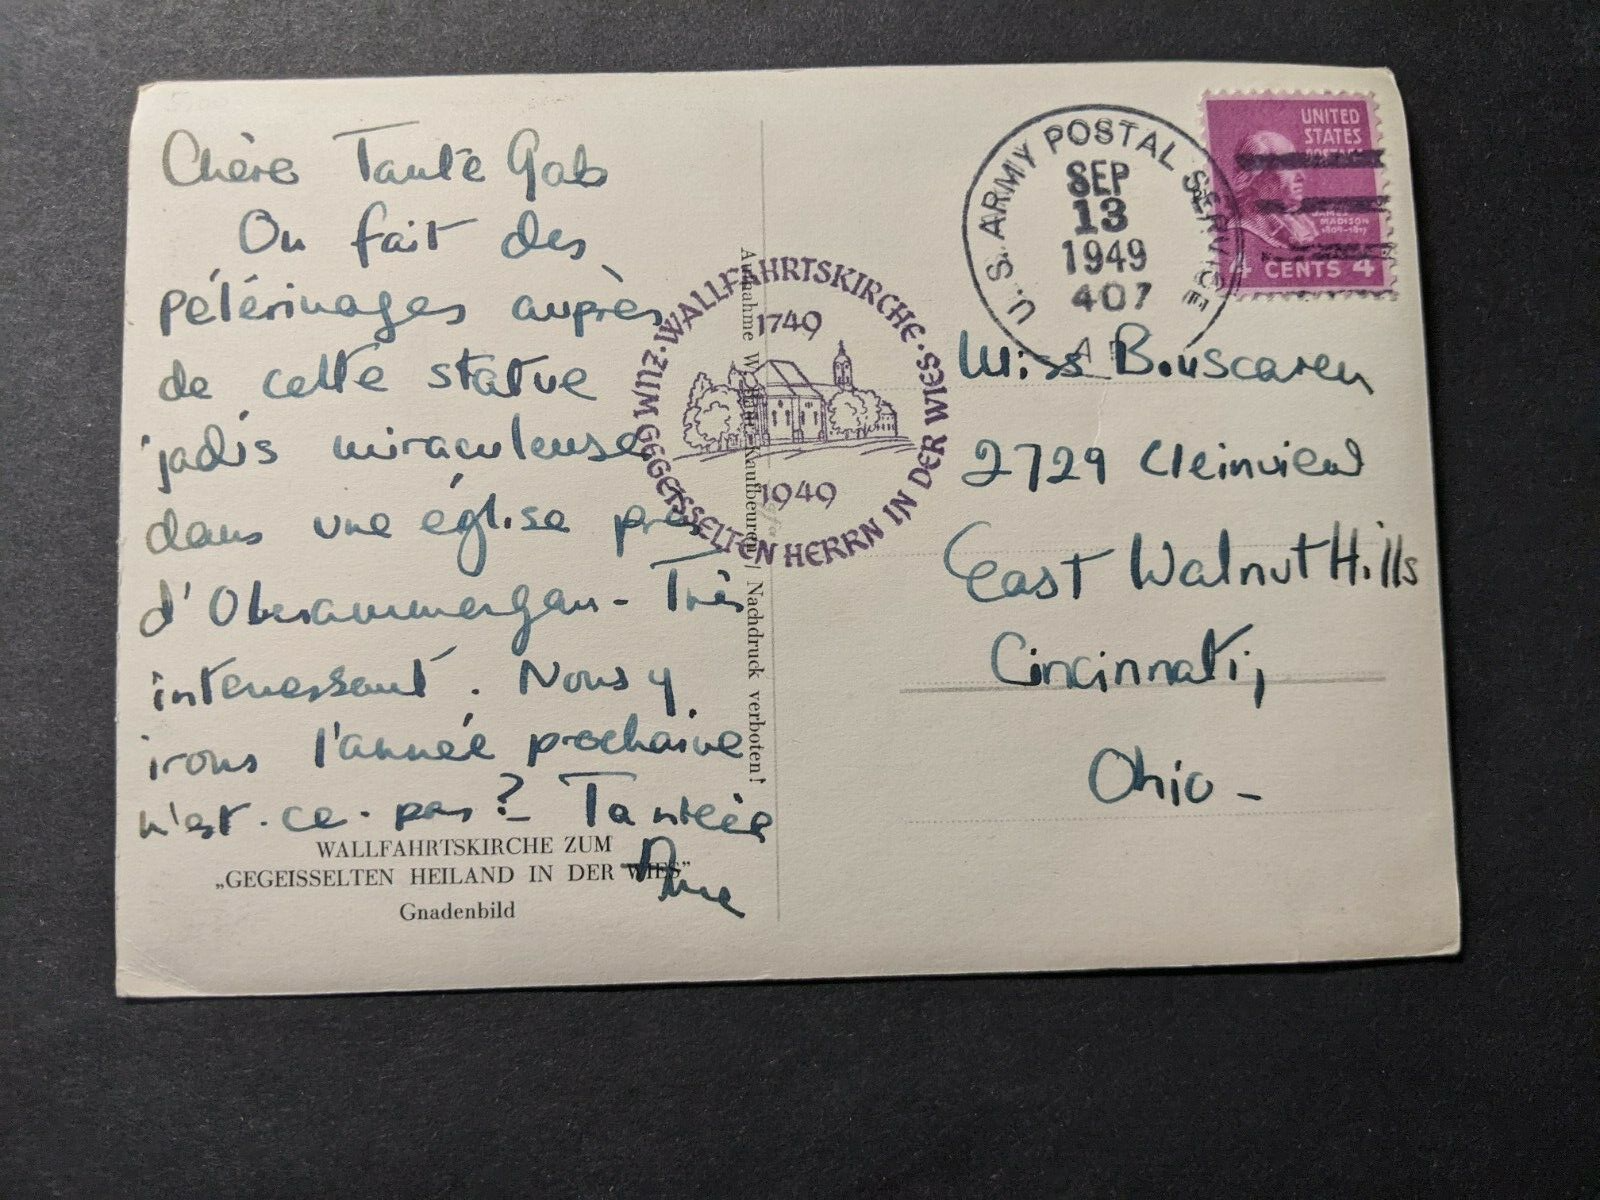 Chère Tante Gab
On fait des
pélérinages auprès
de cette statue
jadis miraculeuse
dans une église près
d'Oberammergau - Très
interessant. Nous y
irons l'année prochaine
n'est-ce-pas?
WALLFAHRTSKIRCHE ZUM
„GEGEISSELTEN HEILAND IN DER WIES”
Gnadenbild
Aufnahme Kaufbeuren / Nachdruck verboten!
WALLFAHRTSKIRCHE · ZUM GEGEISSELTEN HERRN IN DER WIES ·
1749
1949
U.S. ARMY POSTAL SERVICE
SEP
13
1949
407
UNITED
STATES
POSTAGE
JAMES
MADISON
1809-1817
4 CENTS 4
Miss Bouscaren
2729 Cleinview
East Walnut Hills
Cincinnati,
Ohio -